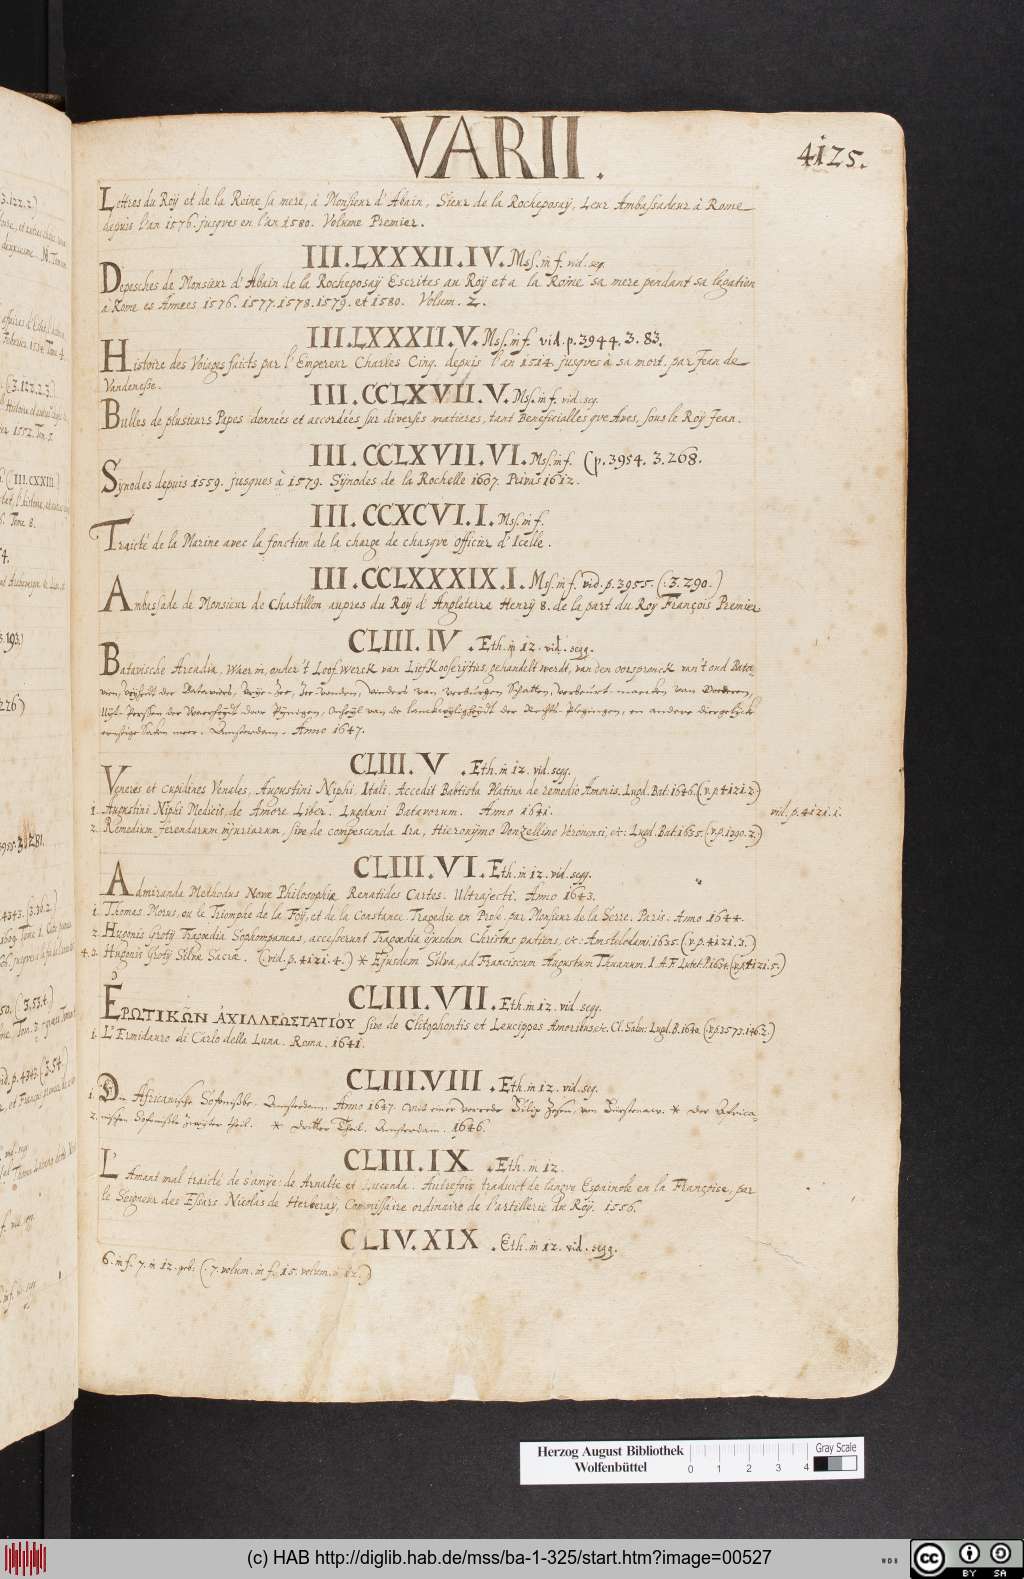 VARII.
4125.
Lettres du Roÿ et de la Reine sa mere, à Monsieur d'Abain, Sieur de la Rocheposaÿ, Leur Ambassadeur à Rome
depuis l'an 1576. jusques en l'an 1580. Volume Premier.
III.LXXXII.IV. Mss. in f. vid. seg.
Depesches de Monsieur d'Abain de la Rocheposaÿ Escrites au Roÿ et a la Roine sa mere pendant sa legation
à Rome es Annees 1576. 1577. 1578. 1579. et 1580. Volum. 2.
III.LXXXII.V. Mss. in f. vid. p. 3944. 3. 83.
Histoire des Voiages faicts par l'Empereur Charles Cinq. depuis l'an 1514. jusques à sa mort. par Jean de
Vandenesse.
III.CCLXVII.V. Mss. in f. vid. seg.
Bulles de plusieurs Papes données et accordées sur diverses matieres, tant Beneficialles que Aves, sous le Roÿ Jean.
III.CCLXVII.VI. Mss. in f. (p. 3954. 3. 268.
Sÿnodes depuis 1559. jusques à 1579. Sÿnodes de la Rochelle 1607. Privas 1612.
III.CCXCVI.I. Mss. in f.
Traicté de la Marine avec la fonction de la charge de chasque officier d'Icelle.
III.CCLXXXIX.I. Mss. in f. vid. p. 3955. (3. 290.)
Ambassade de Monsieur de Chastillon aupres du Roÿ d'Angleterre Henrÿ 8. de la part du Roy François Premier
CLIII.IV. Eth. in 12. vid. segg.
Batavische Arcadia, Waer in, onder 't Loof-werck van Liefkooserÿtjes, gehandelt werdt, van den oorspronck van 't oud Bata-
vien, Vrÿheit der Bataviers, Vrije-Zee, Zee-vonden, vinders van verburgen Schatten, verbeurt-maecken van Goederen,
Uÿt-Perssen der Waerheÿdt door Pÿnigen, Onheÿl van de Lanckwÿligheÿdt der Rechts-Plegingen, en andere diergelÿcke
ernstige Saken meer. Amsterdam. Anno 1647.
CLIII.V. Eth. in 12. vid. segg.
Veneres et cupidines Venales, Augustini Niphi Itali. Accedit Baptista Platina de remedio Amoris. Lugd. Bat. 1646. (v. p. 4121. 2.)
1. Augustini Niphi Medicis de Amore Liber. Lugduni Batavorum. Anno 1641. vid. p. 4121. 1.
2. Remedium ferendarum injuriarum, sive de compescenda Ira, Hieronÿmo Donzellino Veronensi, etc: Lugd. Bat. 1635. (v. p. 1290. 2.)
CLIII.VI. Eth. in 12. vid. segg.
Admiranda Methodus Novæ Philosophiæ Renatides Cartes. Ultrajecti. Anno 1643.
1. Thomas Morus, ou le Triomphe de la Foÿ, et de la Constance. Tragedie en Prose. par Monsieur de la Serre. Paris. Anno 1644.
2. Hugonis Grotÿ Tragœdia Sophompaneas, accesserunt Tragœdia ejusdem Christus patiens, etc: Amstelodami. 1635. (v. p. 4121. 3.)
4. 3. Hugonis Grotÿ Silvæ Sacræ. (vid. p. 4121. 4.) * Ejusdem Silva, ad Franciscum Augustum Thuanum. I. A. F. Lutet. P. 1634. (v. p. 4121. 5.)
CLIII.VII. Eth. in 12. vid. segg.
ἘΡΩΤΙΚΩΝ ἈΧΙΛΛΕΩΣΤΑΤΙΟΥ sive de Clitophontis et Leucippes Amoribus etc. Cl. Salm: Lugd. B. 1640. (v. p. 2573. 146. 2.)
1. L'Ermidauro di Carlo della Luna. Roma. 1641.
CLIII.VIII. Eth. in 12. vid. seg.
1. Die Africanische Sofonisbe. Amsterdam. Anno 1647. Mit einer vorrede Filip Zesen, von Fürstenau. * Der Africa-
2. nischen Sofonisbe zweÿter theil. * Dritter Theil. Amsterdam. 1646.
CLIII.IX. Eth. in 12.
L'Amant mal traicté de s'amÿe: de Arnalte et Lucenda. Autrefois traduict de langue Espainole en la Françoise, par
le Seigneur des Essars Nicolas de Herberaÿ, Commissaire ordinaire de l'artillerie du Roÿ. 1556.
CLIV.XIX. Eth. in 12. vid. segg.
6. in f. 7. in 12. geb: (7. volum. in f. 15. volum. in 12.)
Herzog August Bibliothek
Wolfenbüttel
0 1 2 3 4
Gray Scale
(c) HAB http://diglib.hab.de/mss/ba-1-325/start.htm?image=00527
WDB
cc BY SA